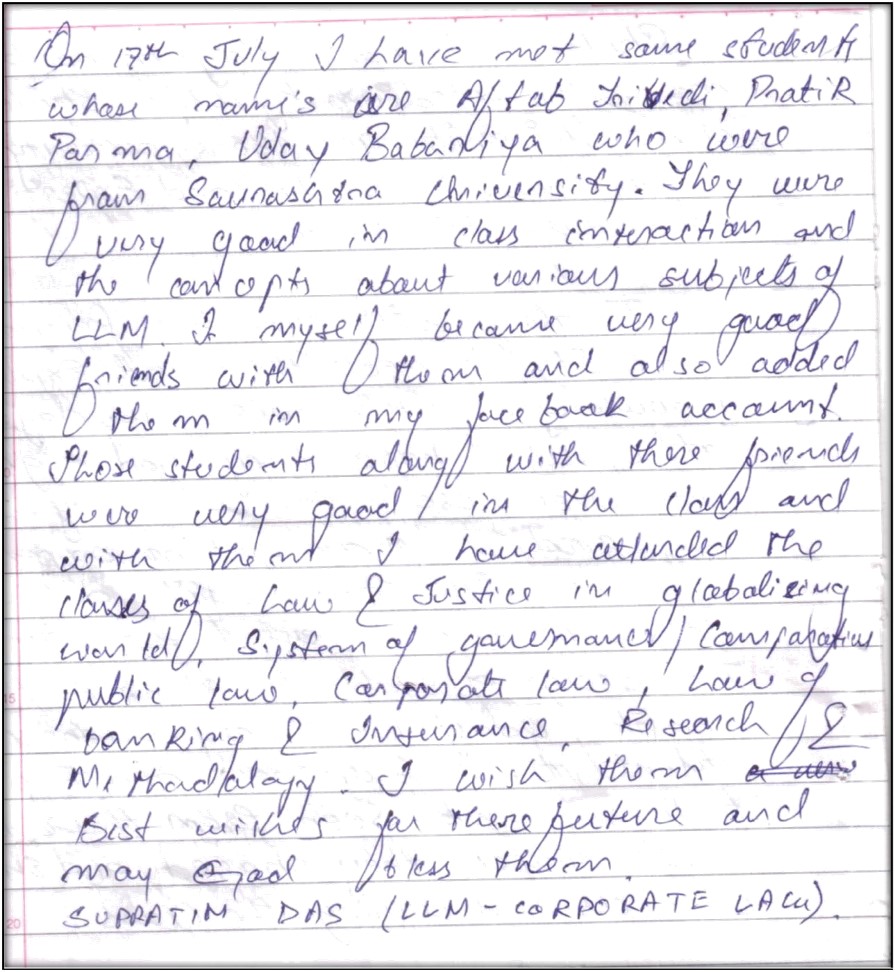 On 17th July I have met some students
whose name's are Aftab Trivedi, Pratik
Parma, Uday Babariya who were
from Saurashtra University. They were
very good in class interaction and
the concepts about various subjects of
LLM. I myself became very good
friends with them and also added
them in my facebook account.
Those students along with there friends
were very good in the class and
with them I have attended the
classes of Law & Justice in globalizing
world, System of governance / Comparative
public law, Corporate law, Law of
banking & Insurance, Research &
Methodology. I wish them
Best wishes for there future and
may God bless them.
SUPRATIM DAS (LLM - CORPORATE LAW).
15
20